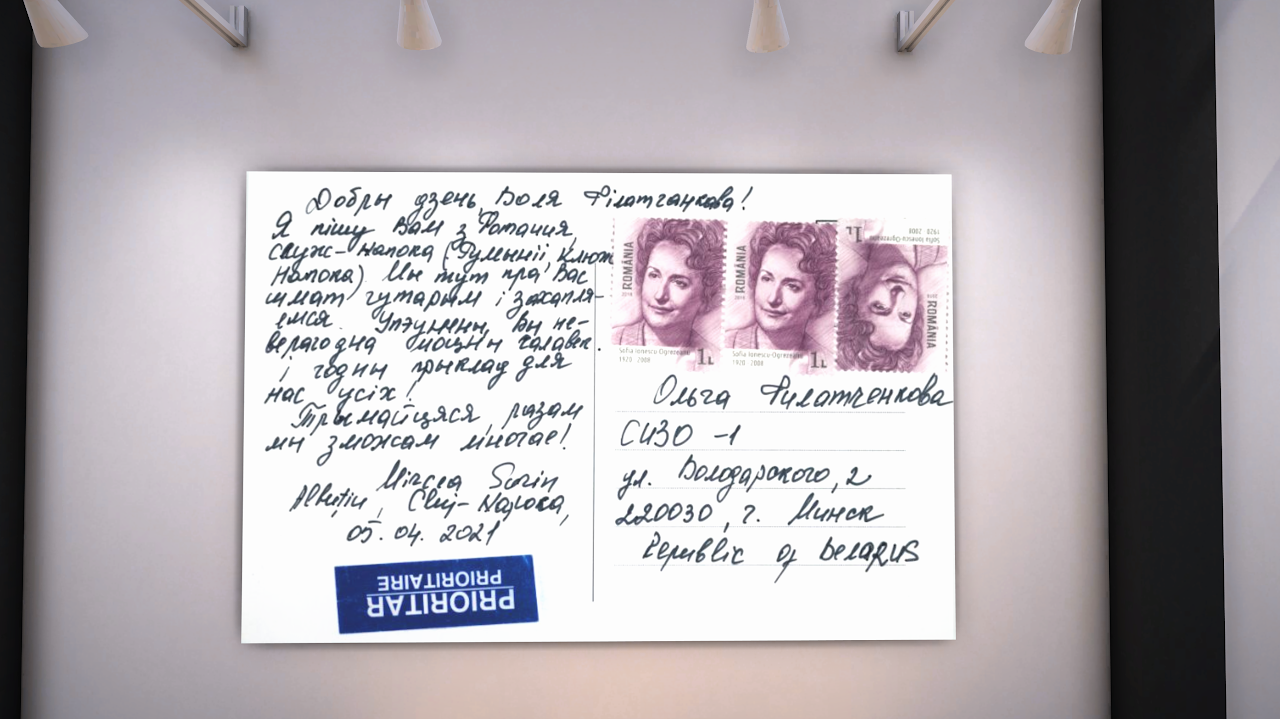 Добры дзень, Воля Філатчанкова!
Я пішу Вам з Румынія,
Клуж-Напока (Румыніі, Клюж
Напока). Мы тут пра Вас
шмат гутарым і захапля-
емся. Упэўнены, Вы не-
верагодна моцны чалавек
і годны прыклад для
нас усіх!
Трымайцеся, разам
мы зможам многае!
Mircea Sorin
Albuțiu, Cluj-Napoca,
05.04.2021
PRIORITAR
PRIORITAIRE
ROMÂNIA
Sofia Ionescu-Ogrezeanu
1920 - 2008
1L
ROMÂNIA
Sofia Ionescu-Ogrezeanu
1920 - 2008
1L
ROMÂNIA
Sofia Ionescu-Ogrezeanu
1920 - 2008
1L
Ольга Филатченкова
СИЗО-1
ул. Володарского, 2
220030, г. Минск
Republic of Belarus